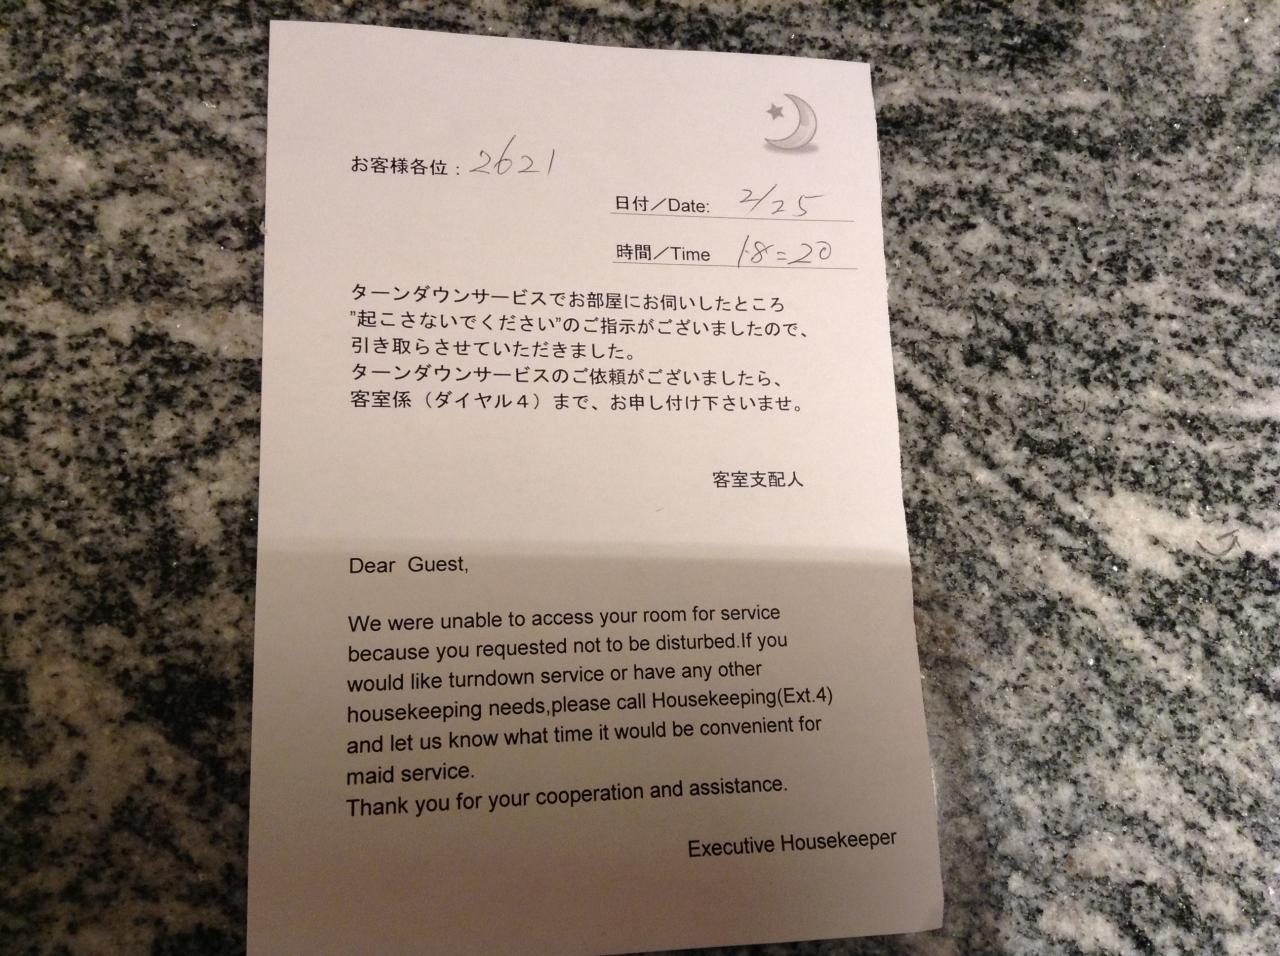 お客様各位：2621
日付／Date: 2/25
時間／Time 18=20
ターンダウンサービスでお部屋にお伺いしたところ
”起こさないでください”のご指示がございましたので、
引き取らさせていただきました。
ターンダウンサービスのご依頼がございましたら、
客室係（ダイヤル４）まで、お申し付け下さいませ。
客室支配人
Dear Guest,
We were unable to access your room for service
because you requested not to be disturbed.If you
would like turndown service or have any other
housekeeping needs,please call Housekeeping(Ext.4)
and let us know what time it would be convenient for
maid service.
Thank you for your cooperation and assistance.
Executive Housekeeper